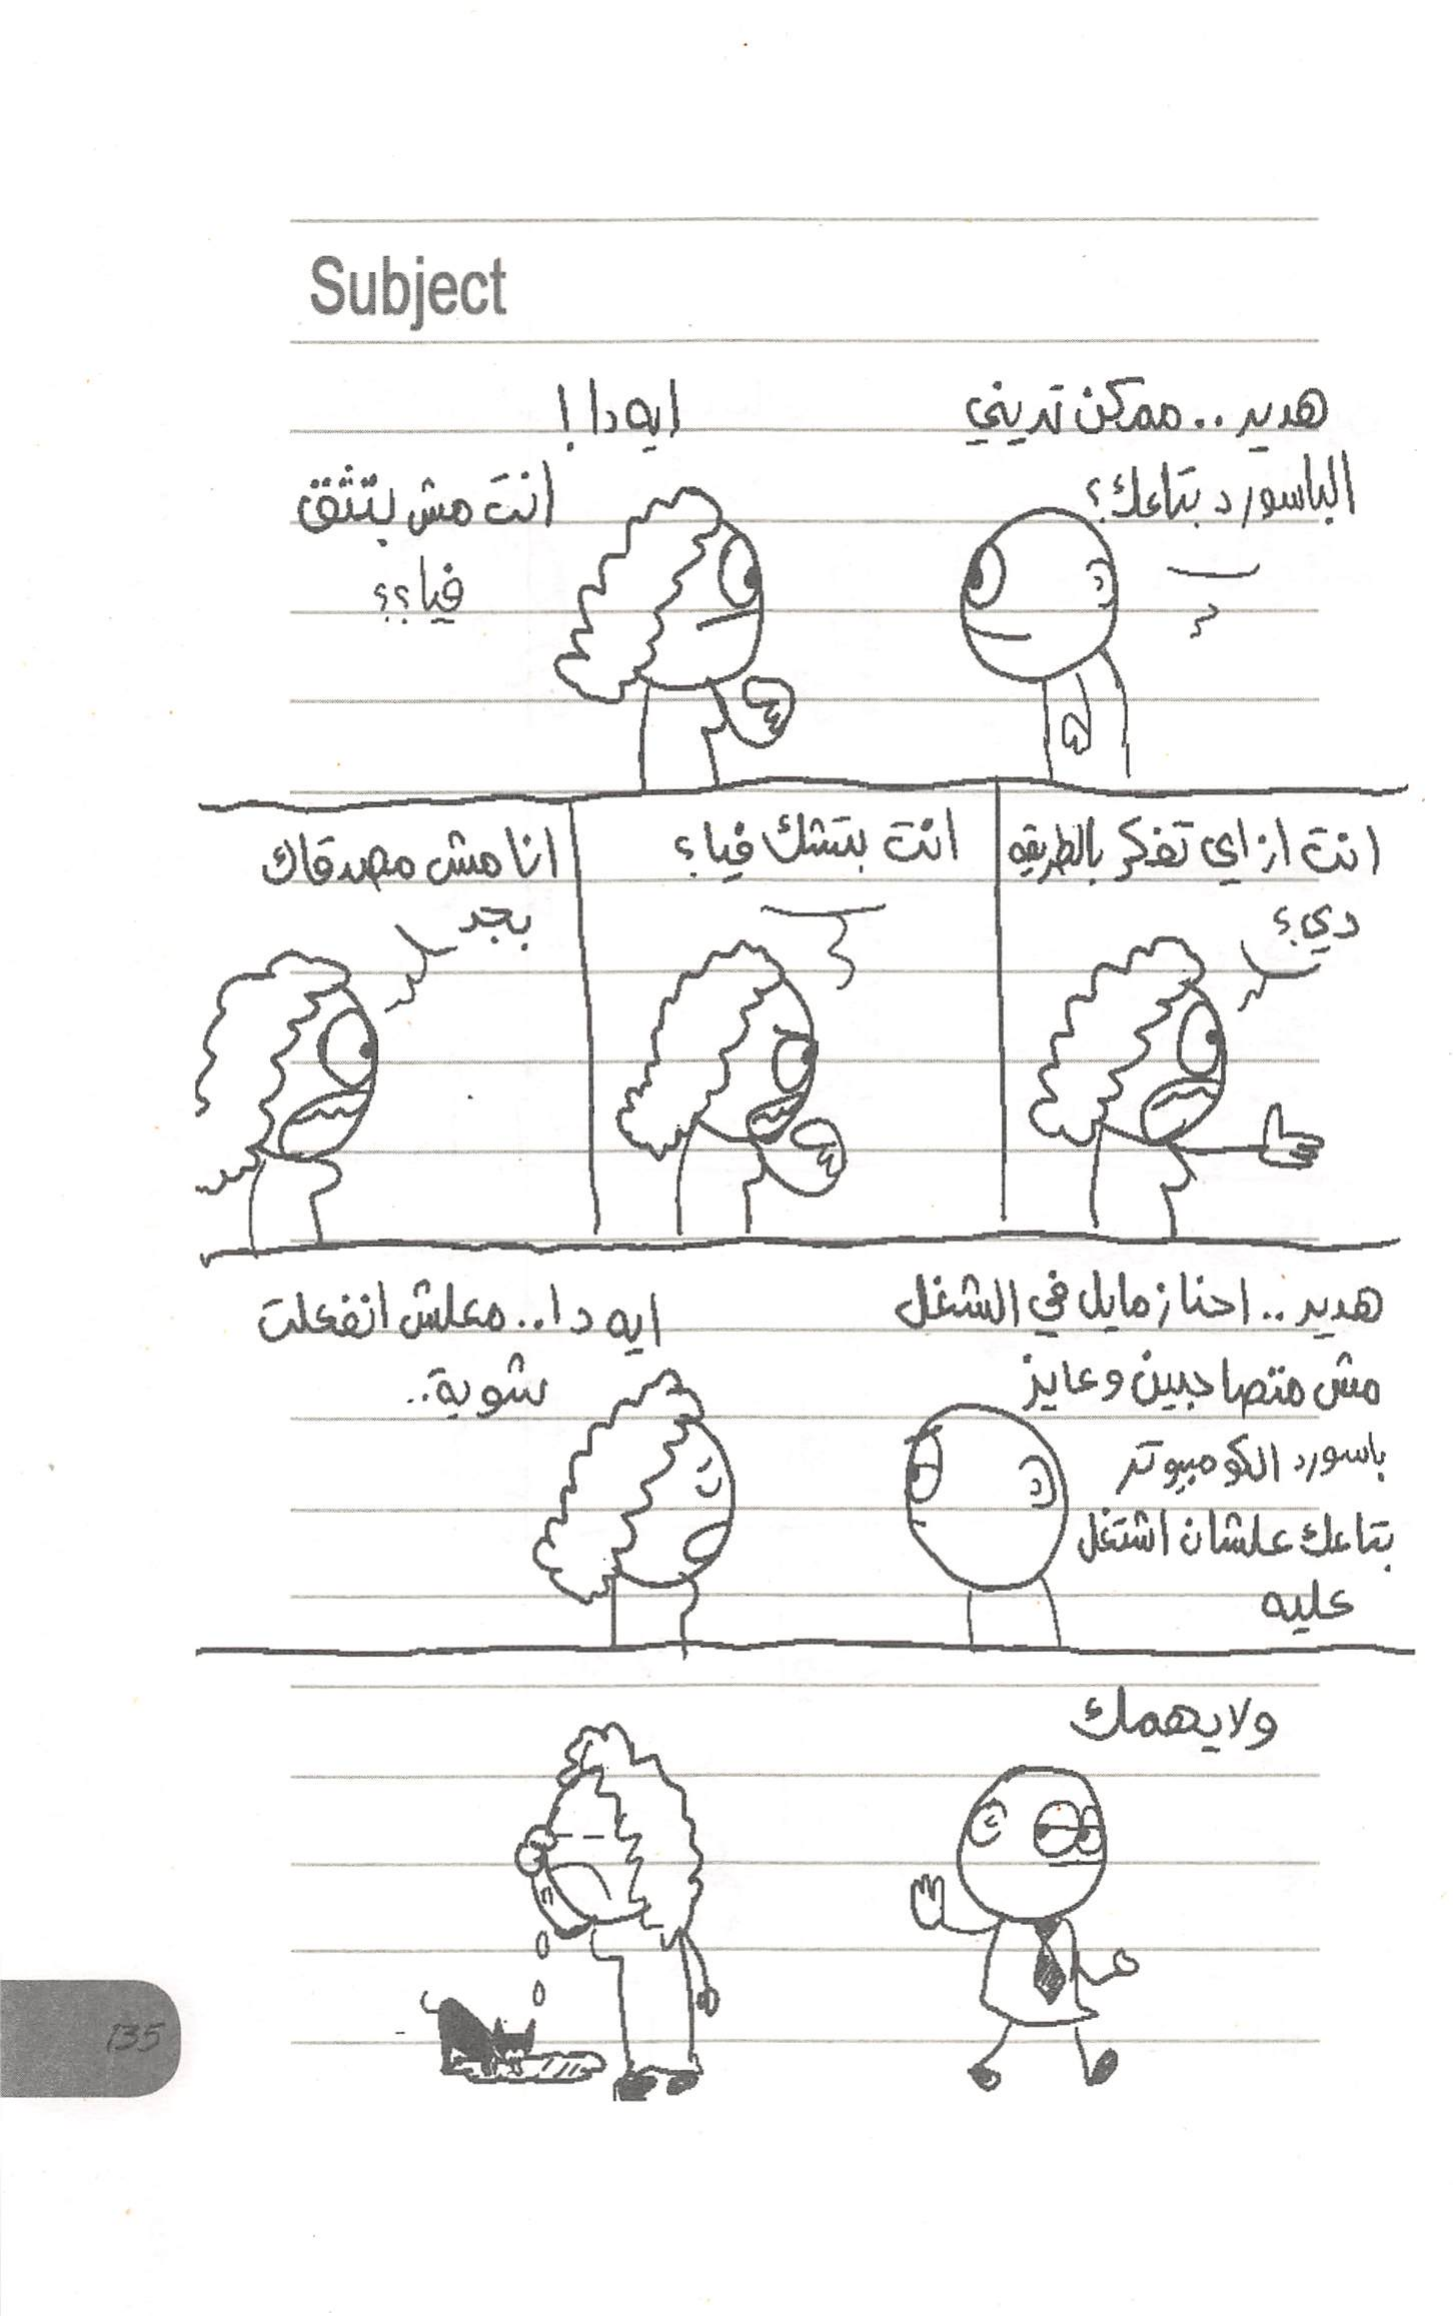 Subject
هدير.. ممكن تديني
الباسورد بتاعك؟
ايه دا!
انت مش بتثق
فيا؟؟
انت ازاي تفكر بالطريقه
دي؟
انت بتشك فيا؟
انا مش مصدقاك
بجد
هدير.. احنا زمايل في الشغل
مش متصاحبين وعايز
باسورد الكومبيوتر
بتاعك علشان اشتغل
عليه
ايه دا.. معلش انفعلت
شوية..
ولا يهمك
135